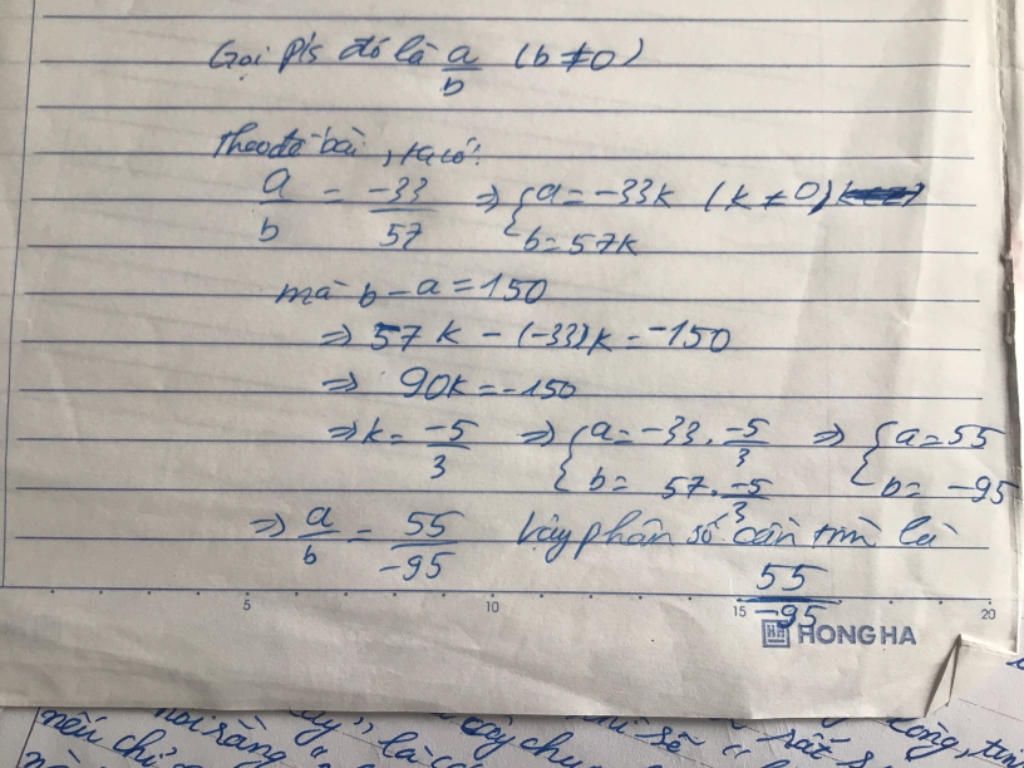 Gọi p/s đó là a/b (b ≠ 0)
Theo đề bài, ta có:
a/b = -33/57 => { a = -33k (k ≠ 0)
b = 57k
mà b - a = 150
=> 57k - (-33)k = -150
=> 90k = -150
=> k = -5/3 => { a = -33 . -5/3 => { a = 55
b = 57 . -5/3 b = -95
=> a/b = 55/-95 Vậy phân số cần tìm là
55/-95
5 10 15 20
HH HONG HA
nói rằng " là
nếu chỉ